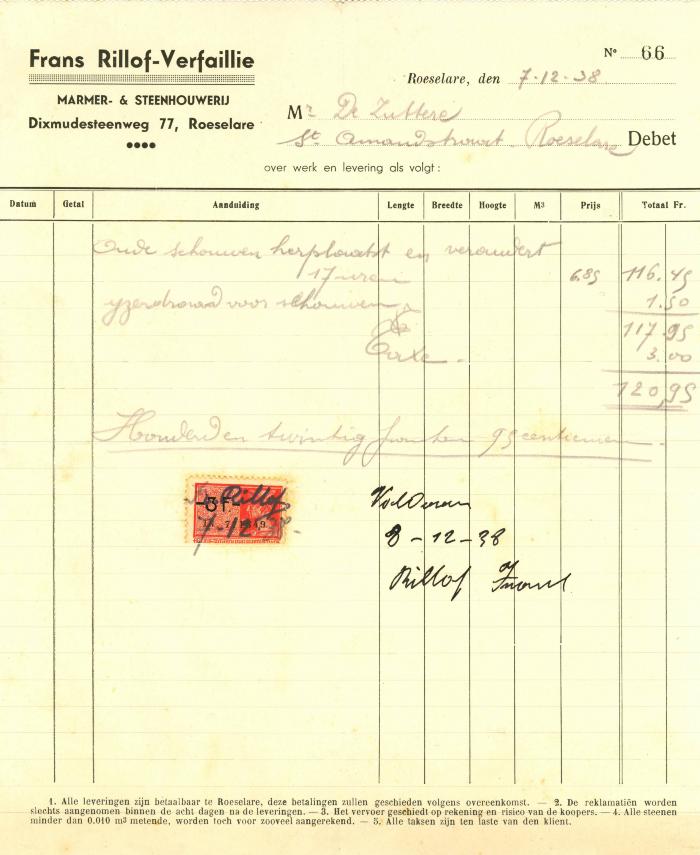 Frans Rillof-Verfaillie
MARMER- & STEENHOUWERIJ
Dixmudesteenweg 77, Roeselare
Nº 66
Roeselare, den 7-12-38
Mr De Zuttere
St Amandstraat. Roeselare Debet
over werk en levering als volgt:
Datum Getal Aanduiding Lengte Breedte Hoogte M³ Prijs Totaal Fr.
Oude schouwen herplaatst en verandert
17 uren 6.85 116.45
yzerdraad voor schouwen 1.50
117.95
Taxe - 3.00
120,95
Honderd en twintig franken 95 centiemen
-3f-
Rillof
7-12-38
Voldaan
8-12-38
Rillof Frans
1. Alle leveringen zijn betaalbaar te Roeselare, deze betalingen zullen geschieden volgens overeenkomst. — 2. De reklamatiën worden
slechts aangenomen binnen de acht dagen na de leveringen. — 3. Het vervoer geschiedt op rekening en risico van de koopers. — 4. Alle steenen
minder dan 0.010 m³ metende, worden toch voor zooveel aangerekend. — 5. Alle taksen zijn ten laste van den klient.